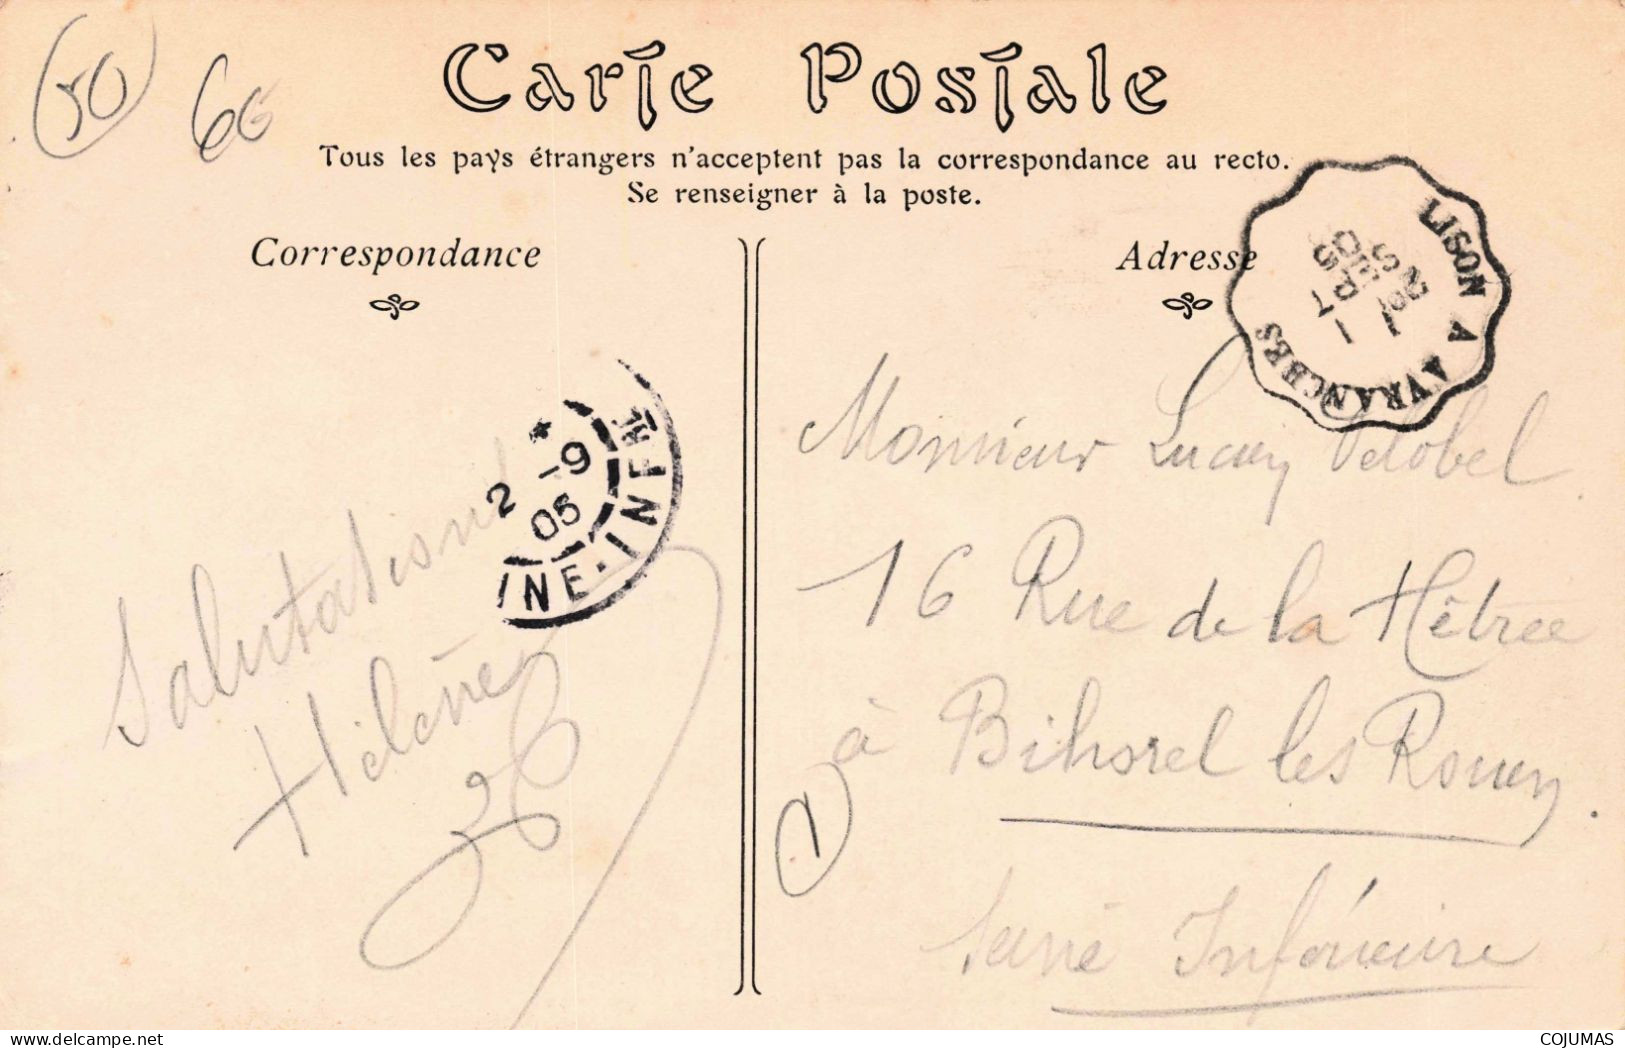 50
6€
Carte Postale
Tous les pays étrangers n'acceptent pas la correspondance au recto.
Se renseigner à la poste.
Correspondance
Adresse
LISON A AVRANCHES
1
SEPT
05
2 -9
05
INE-INFRE
Salutations
Hélène
Monsieur Lucien Delobel
16 Rue de la Hêtrée
à Bihorel les Rouen.
1
Seine Inférieure
COJUMAS